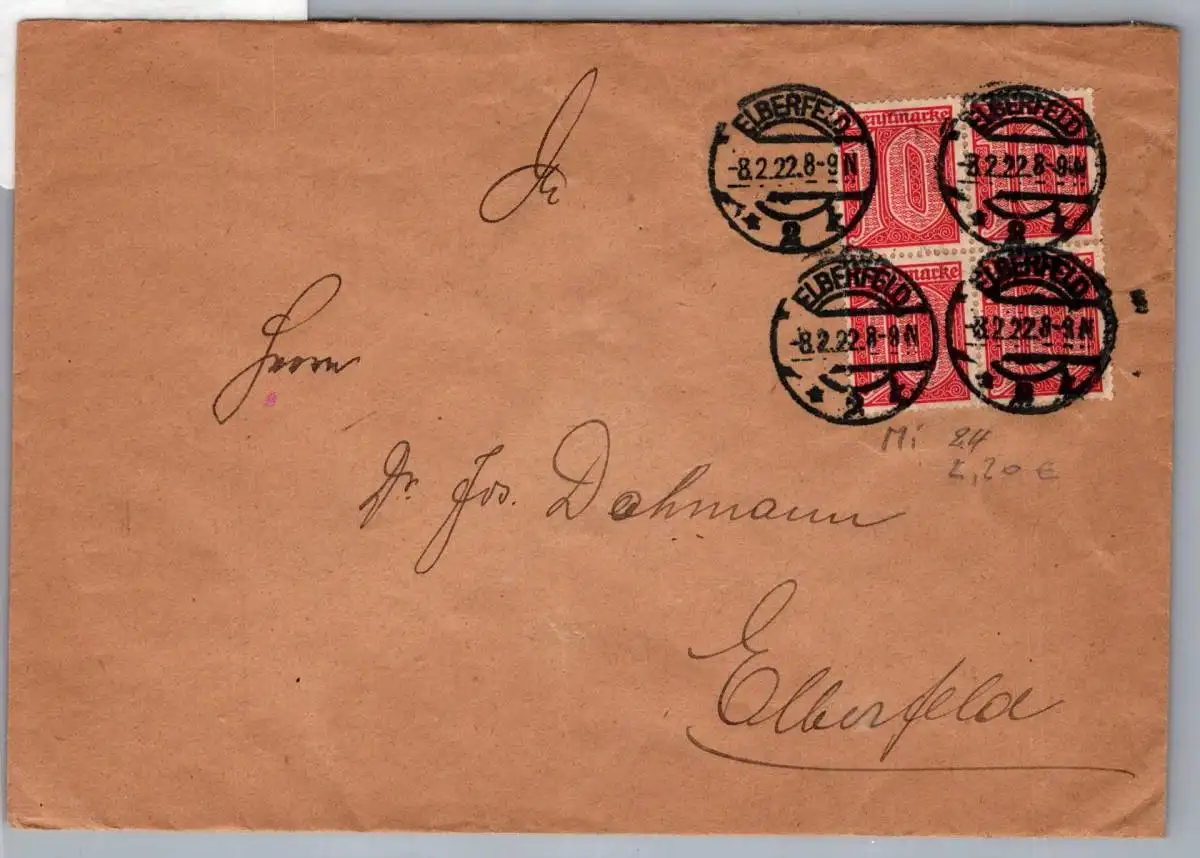 ELBERFELD
-8.2.22.8-9N
* 2 k
ELBERFELD
-8.2.22.8-9N
* 2 k
ELBERFELD
-8.2.22.8-9N
* 2 k
ELBERFELD
-8.2.22.8-9N
* k
enstmarke
10
10
marke
Herrn
Dr. Jos. Dahmann
Elberfeld
Mi 24
2,20 €